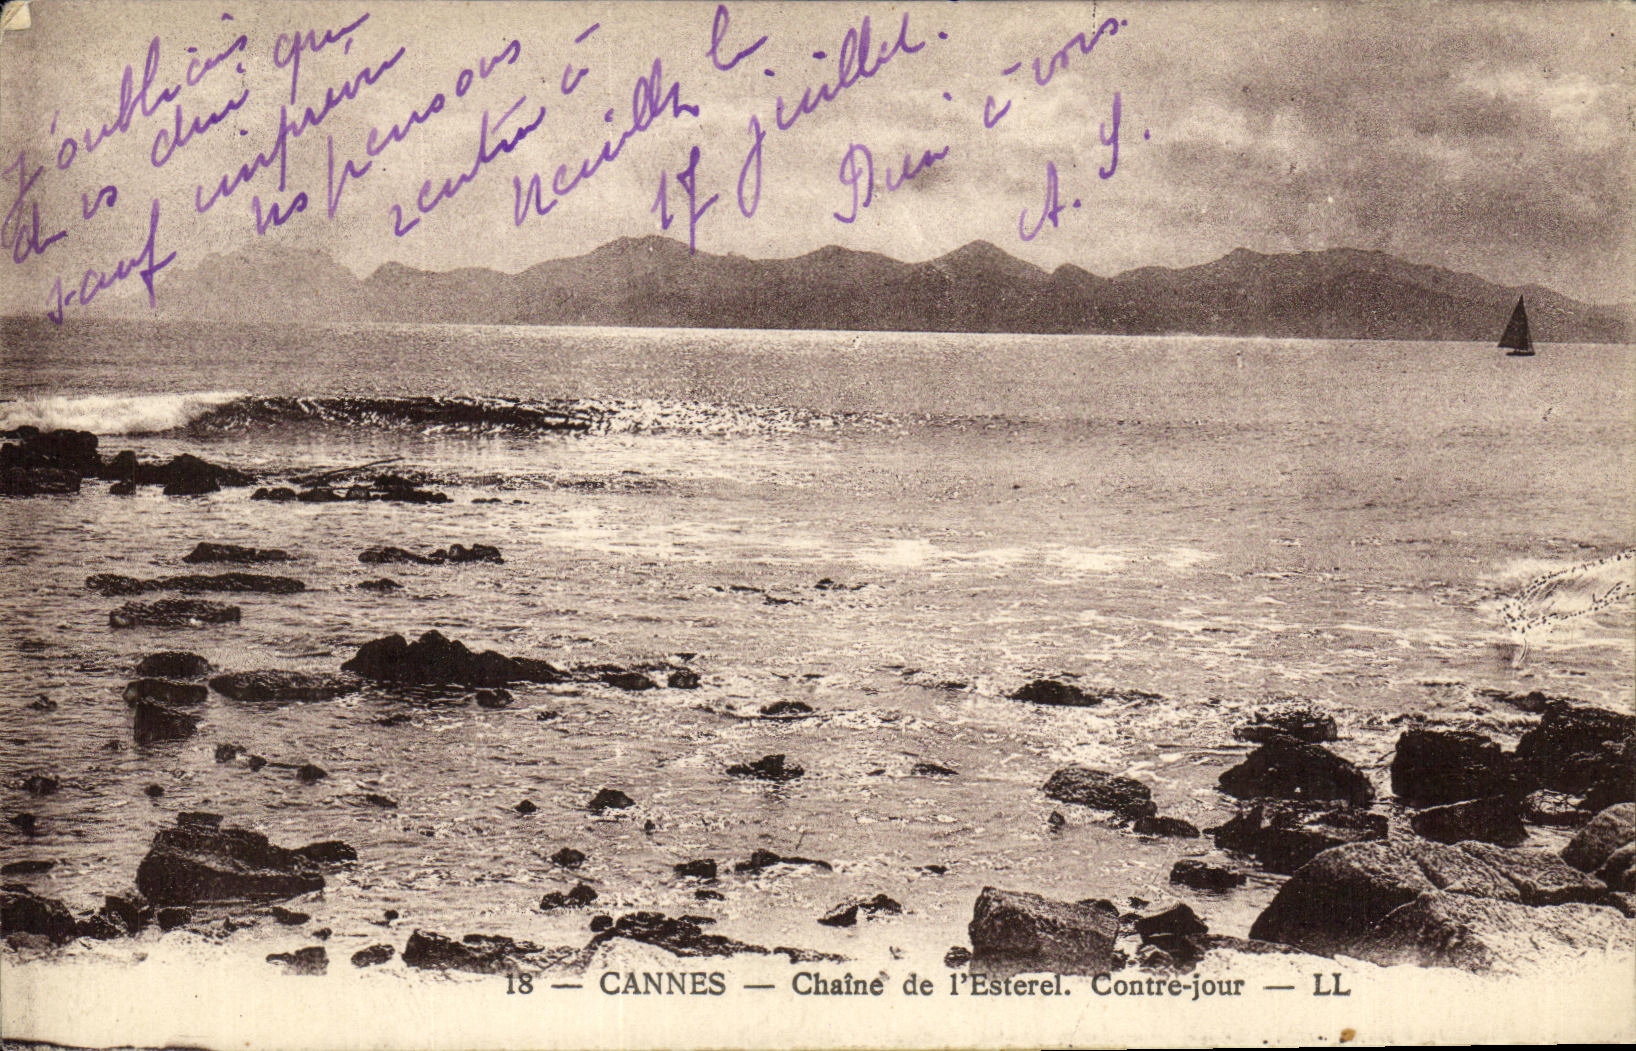 J'oubliais
de vs dire que
sauf imprévu
ns pensons
rentrer à
Neuilly le
17 juillet.
Bien à vous.
A. S.
18 — CANNES — Chaîne de l'Esterel. Contre-jour — LL